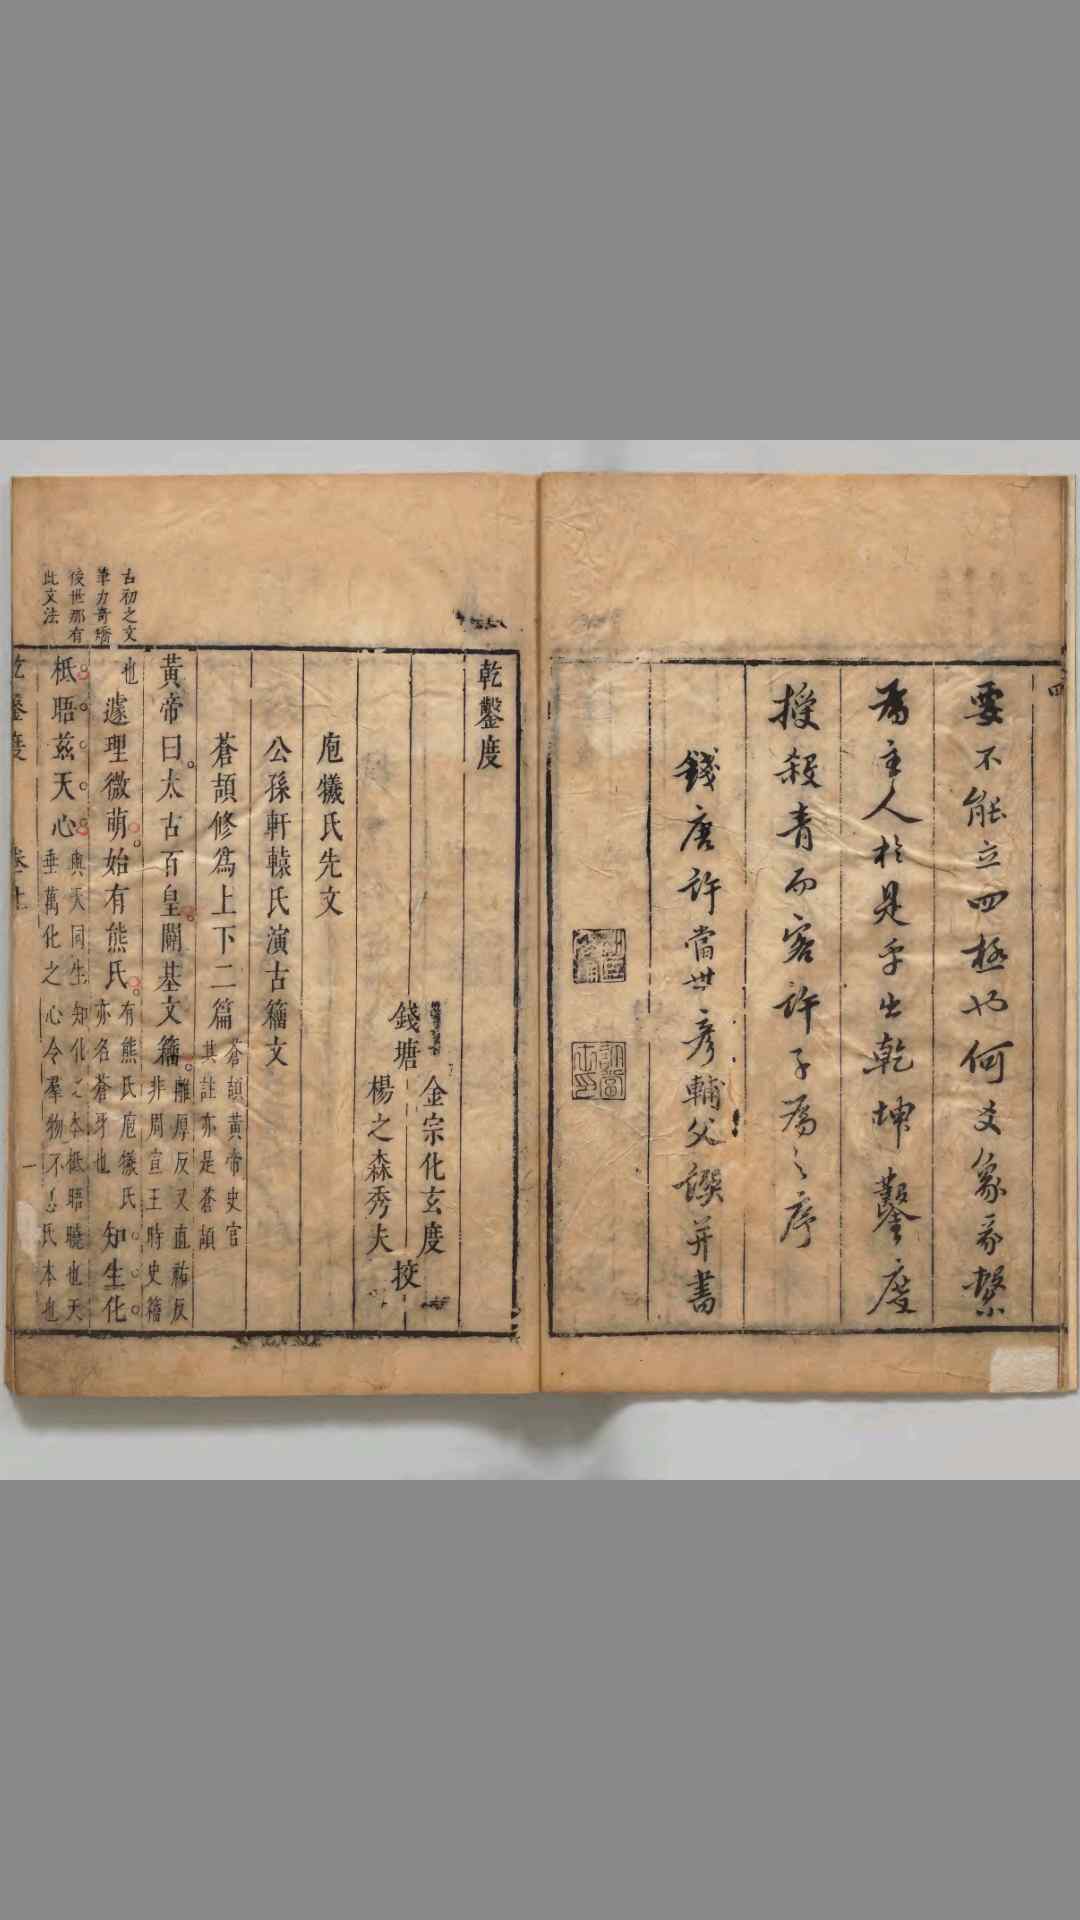 要不能立四極也何爻象彖繫
為主人於是乎出乾坤鑿度
授殺青而客許子為之序
錢唐許當世彥輔父譔并書
乾鑿度
錢塘
金宗化玄度
楊之森秀夫
挍
庖犧氏先文
公孫軒轅氏演古籀文
蒼頡修為上下二篇
蒼頡黃帝史官
其註亦是蒼頡
黃帝曰太古百皇闢基文籀
離厚反又直祐反
非周宣王時史籀
也
遽理微萌始有熊氏
有熊氏庖犧氏
亦名蒼牙也
知生化
柢晤茲天心
與天同生知化之本柢晤曉也天
垂萬化之心令羣物不
氏本也
古初之文
筆力奇矯
後世那有
此文法
乾鑿度
一